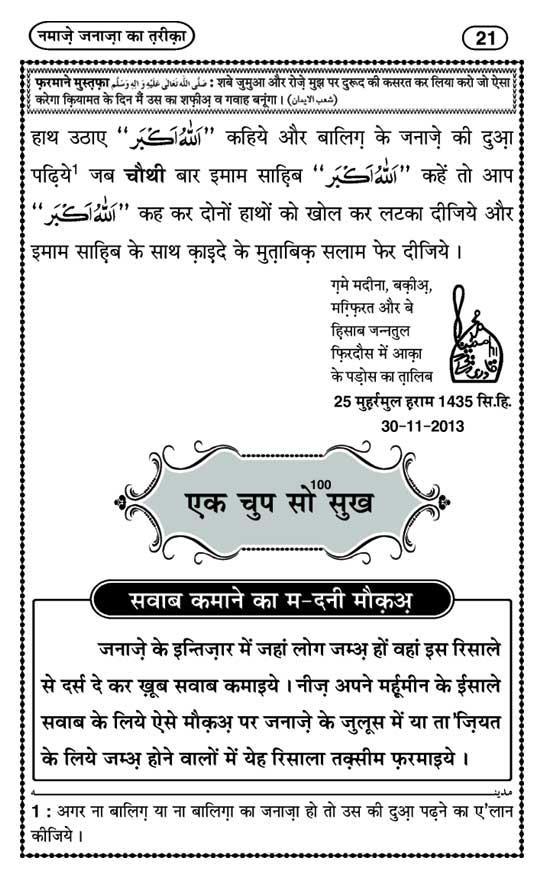 नमाज़े जनाज़ा का त़रीक़ा
21
फ़रमाने मुस्त़फ़ा صَلَّى اللهُ تَعَالٰى عَلَيْهِ وَاٰلِهٖ وَسَلَّم : शबे जुमुआ और रोज़े मुझ पर दुरूद की कसरत कर लिया करो जो ऐसा
करेगा क़ियामत के दिन मैं उस का शफ़ीअ़ व गवाह बनूंगा। (شعب الایمان)
हाथ उठाए “اَللّٰهُ اَكْبَر” कहिये और बालिग़ के जनाज़े की दुआ़
पढ़िये¹ जब चौथी बार इमाम साह़िब “اَللّٰهُ اَكْبَر” कहें तो आप
“اَللّٰهُ اَكْبَر” कह कर दोनों हाथों को खोल कर लटका दीजिये और
इमाम साह़िब के साथ क़ाइदे के मुत़ाबिक़ सलाम फेर दीजिये ।
ग़मे मदीना, बक़ीअ़,
मग़्फ़िरत और बे
ह़िसाब जन्नतुल
फ़िरदौस में आक़ा
के पड़ोस का त़ालिब
25 मुह़र्रमुल ह़राम 1435 सि.हि.
30-11-2013
एक चुप सो¹⁰⁰ सुख
सवाब कमाने का म-दनी मौक़अ़
जनाज़े के इन्तिज़ार में जहां लोग जम्अ़ हों वहां इस रिसाले
से दर्स दे कर ख़ूब सवाब कमाइये । नीज़ अपने मर्ह़ूमीन के ईसाले
सवाब के लिये ऐसे मौक़अ़ पर जनाज़े के जुलूस में या ता'ज़ियत
के लिये जम्अ़ होने वालों में येह रिसाला तक़्सीम फ़रमाइये ।
مدینه
1 : अगर ना बालिग़ या ना बालिग़ा का जनाज़ा हो तो उस की दुआ़ पढ़ने का ए'लान
कीजिये ।